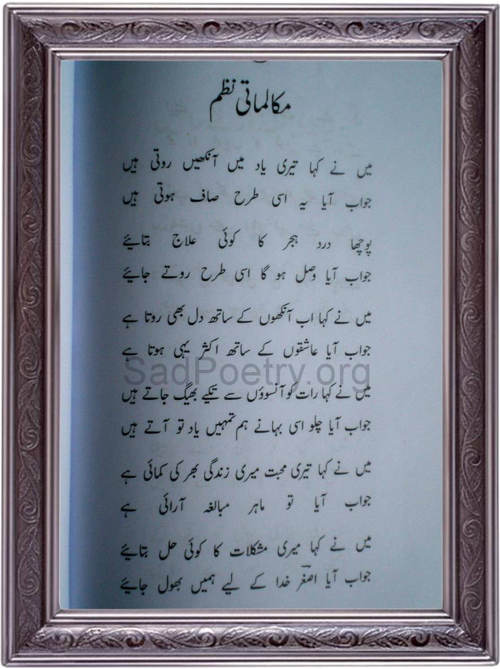 مکالماتی نظم
میں نے کہا تیری یاد میں آنکھیں روتی ہیں
جواب آیا یہ اسی طرح صاف ہوتی ہیں
پوچھا درد ہجر کا کوئی علاج بتائیے
جواب آیا وصل ہو گا اسی طرح روتے جائیے
میں نے کہا اب آنکھوں کے ساتھ دل بھی روتا ہے
جواب آیا عاشقوں کے ساتھ اکثر یہی ہوتا ہے
SadPoetry.org
میں نے کہا رات کو آنسوؤں سے تکیے بھیگ جاتے ہیں
جواب آیا چلو اسی بہانے ہم تمہیں یاد تو آتے ہیں
میں نے کہا تیری محبت میری زندگی بھر کی کمائی ہے
جواب آیا تو ماہر مبالغہ آرائی ہے
میں نے کہا میری مشکلات کا کوئی حل بتائیے
جواب آیا اصغرؔ خدا کے لیے ہمیں بھول جائیے